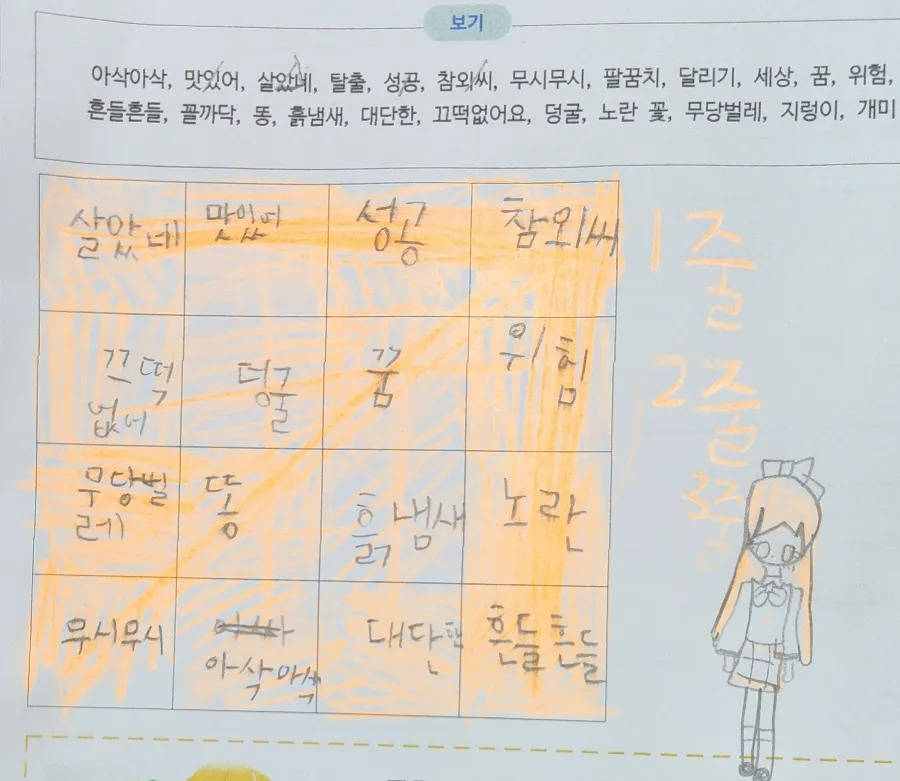 보기
아삭아삭, 맛있어, 살았네, 탈출, 성공, 참외씨, 무시무시, 팔꿈치, 달리기, 세상, 꿈, 위험,
흔들흔들, 꼴까닥, 똥, 흙냄새, 대단한, 끄떡없어요, 덩굴, 노란 꽃, 무당벌레, 지렁이, 개미
살았네 맛있어 성공 참외씨
1줄
끄떡
없네
덩굴 꿈 위험
2줄
무당벌
레
똥 흙냄새 노란
3줄
무시무시
아삭아삭
대단한 흔들흔들